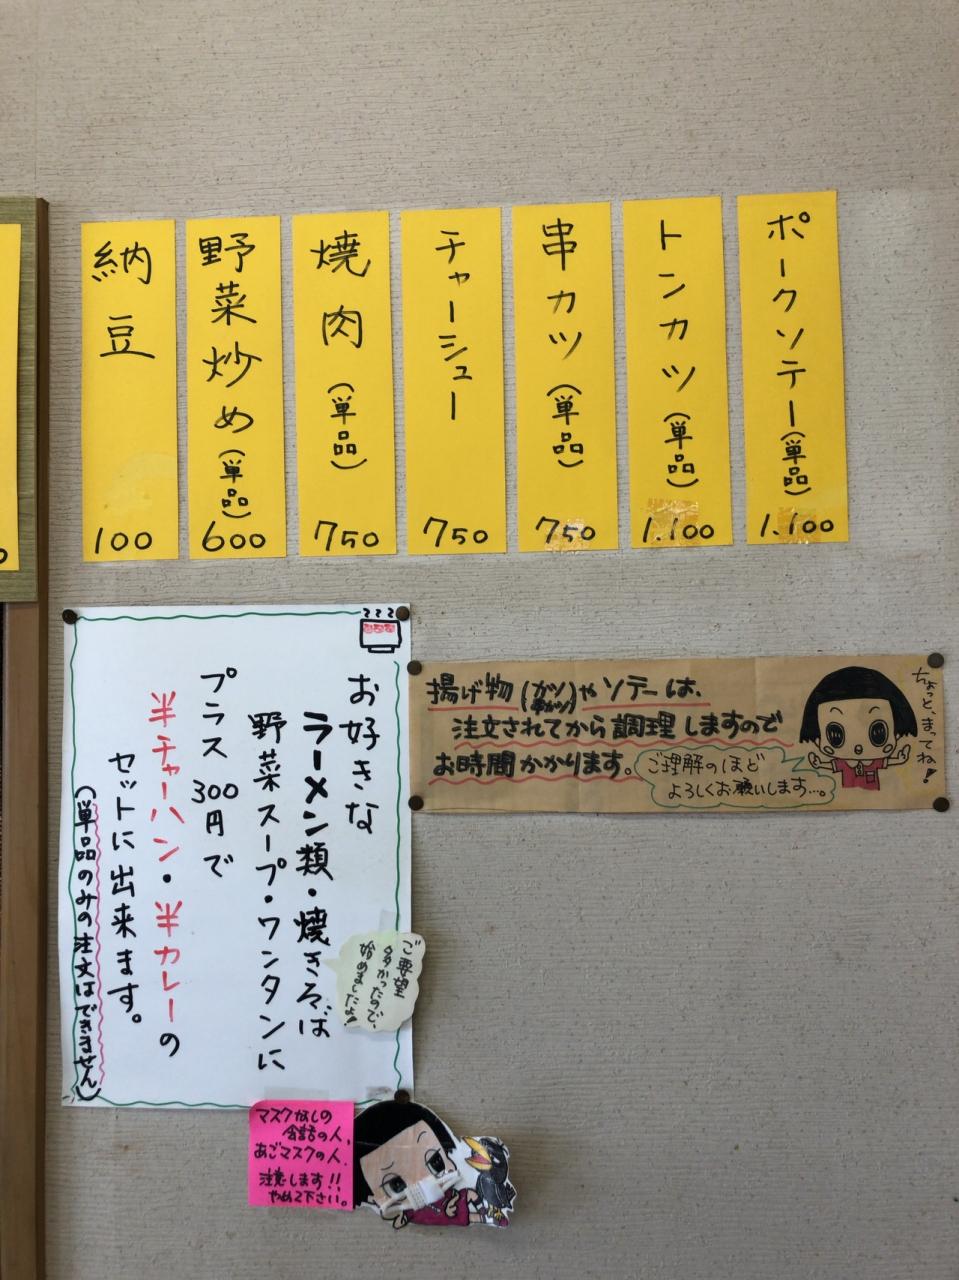 ポークソテー(単品)
1.100
トンカツ(単品)
1.100
串カツ(単品)
750
チャーシュー
750
焼肉(単品)
750
野菜炒め(単品)
600
納豆
100
お好きな
ラーメン類・焼きそば
野菜スープ・ワンタンに
プラス300円で
半チャーハン・半カレーの
セットに出来ます。
(単品のみの注文はできません)
ご要望
多かったので、
始めましたよ!
揚げ物(カツ
串カツ)やソテーは、
注文されてから調理しますので
お時間かかります。
ご理解のほど
よろしくお願いします…。
ちょっと、まってね!
マスクなしの
会話の人、
あごマスクの人、
注意します!!
やめて下さい。